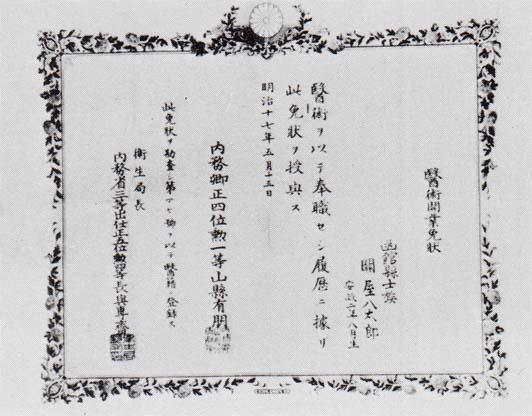 醫術開業免狀
函館縣士族
関屋八太郎
安政二年八月生
醫術ヲ以テ奉職セシ履歴ニ據リ
此免狀ヲ授與ス
明治十七年五月十五日
内務卿正四位勲一等山縣有朋
此免狀ヲ勘査シ第 號ヲ以テ醫籍ニ登録ス
衛生局長
内務省三等出仕正五位勲 等長與專齋